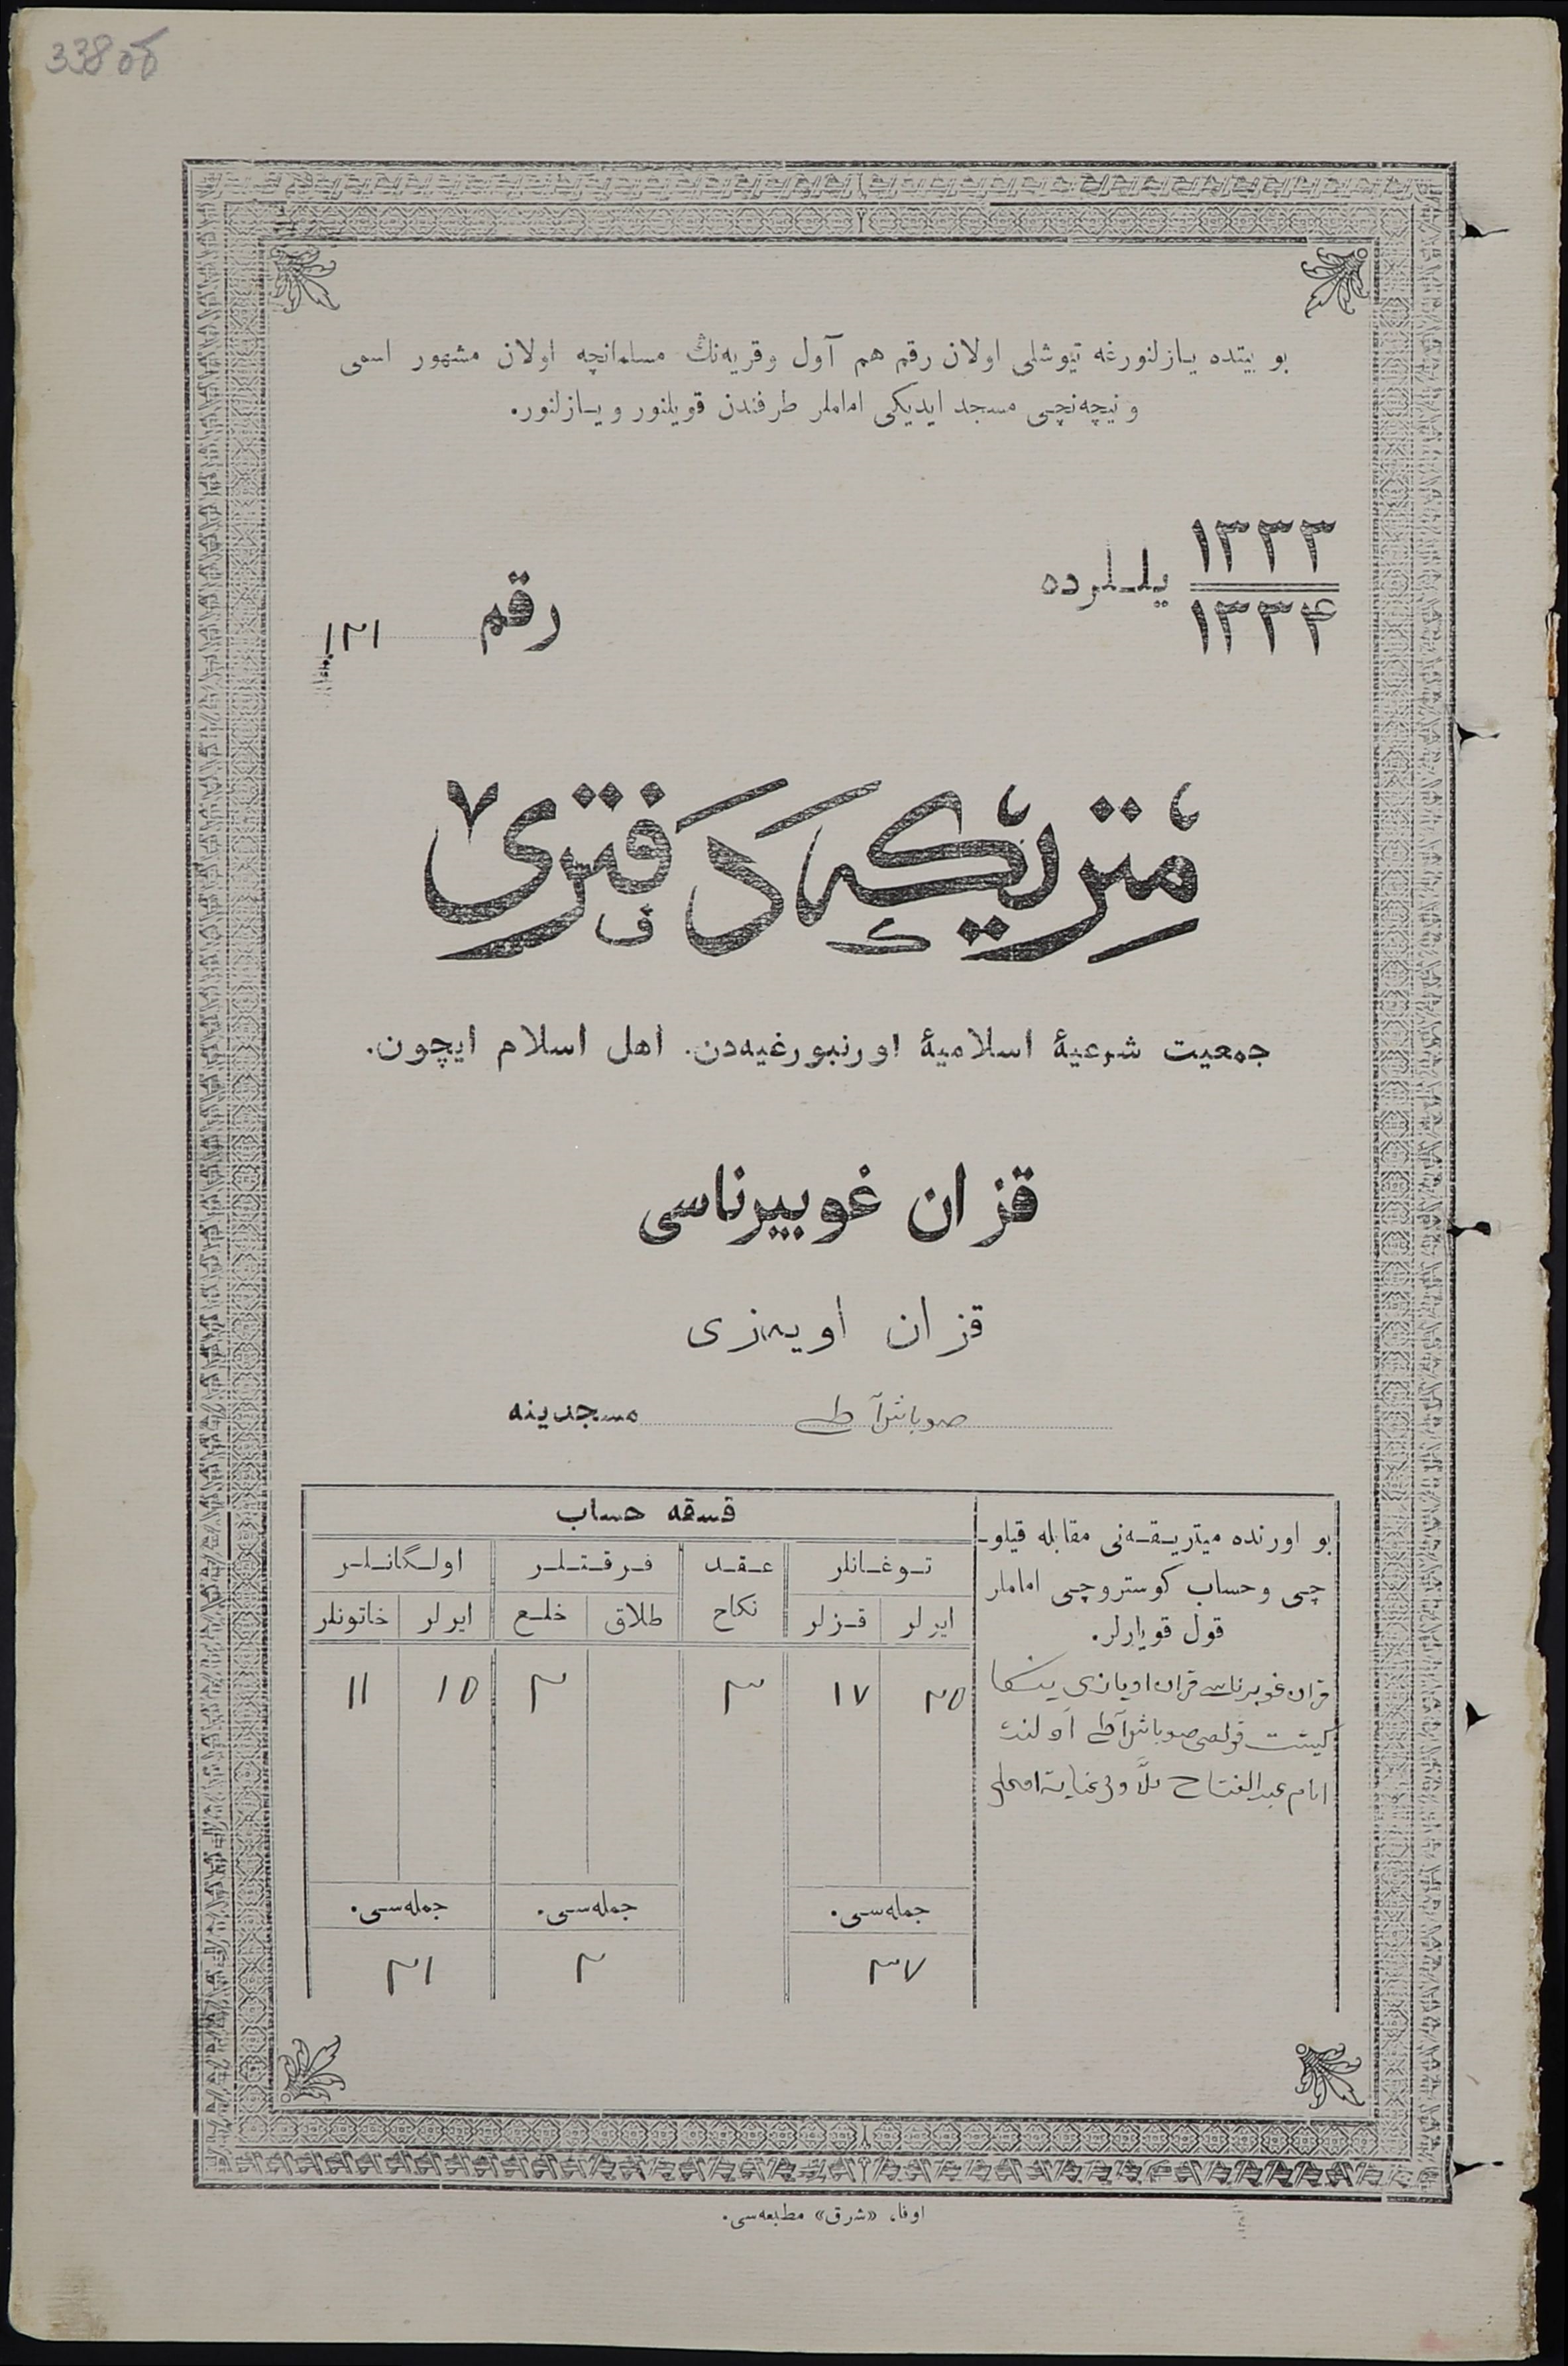 338 об
بو بيتده يازلنورغه تيوشلى اولان رقم هم آول وقريه‌نڭ مسلمانچه اولان مشهور اسمى
ونيچه‌نچى مسجد ايديكى اماملر طرفندن قويلنور ويازلنور.
۱۳۳۳
۱۳۳۴
يللرده
رقم ۱۲۱
مِتْرِيْكَه دَفْتَرِى
جمعيت شرعيهٔ اسلاميهٔ اورنبورغيه‌دن. اهل اسلام ايچون.
قزان غوبيرناسى
قزان اويه‌زى
صوباش آطى مسجدينه
بو اورنده ميتريقه‌نى مقابله قيلو-
چى وحساب كوستروچى اماملر
قول قويارلر.
قزان غوبرناسى قزان اويازى
صوباش آطى
امام عبدالفتاح
قسقه حساب
توغانلر عقد فرقتلر اولگانلر
ايرلر قزلر نكاح طلاق خلع ايرلر خاتونلر
۲۵ ۱۷ ۳ ۲ ۱۵ ۱۱
جمله‌سى. جمله‌سى. جمله‌سى.
۳۷ ۲ ۲۱
اوفا، «شرق» مطبعه‌سى.